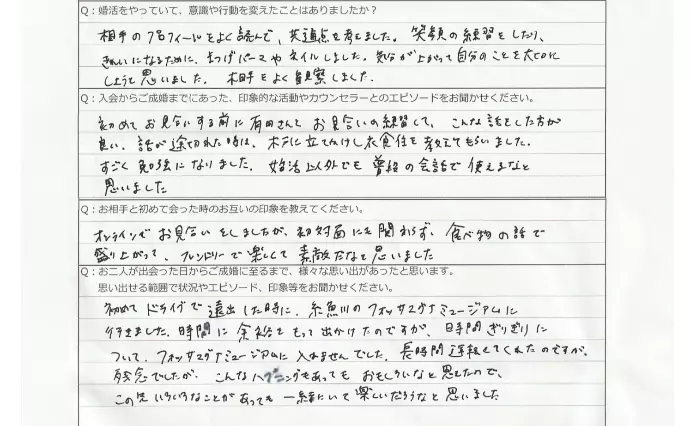 Q：婚活をやっていて、意識や行動を変えたことはありましたか？
相手のプロフィールをよく読んで、共通点を考えました。笑顔の練習をしたり、
きれいになるために、まつげパーマやネイルしました。気分が上がって自分のことを大切に
しようと思いました。相手をよく観察しました。
Q：入会からご成婚までにあった、印象的な活動やカウンセラーとのエピソードをお聞かせください。
初めてお見合いする前に有田さんとお見合いの練習して、こんな話をした方が
良い、話が途切れた時は、木戸に立てかけし衣食住を教えてもらいました。
すごく勉強になりました。婚活以外でも普段の会話で使えるなと
思いました
Q：お相手と初めて会った時のお互いの印象を教えてください。
オンラインでお見合いをしましたが、初対面にも関わらず、食べ物の話で
盛り上がって、フレンドリーで楽しくて素敵だなと思いました
Q：お二人が出会った日からご成婚に至るまで、様々な思い出があったと思います。
思い出せる範囲で状況やエピソード、印象等をお聞かせください。
初めてドライブで遠出した時に、糸魚川のフォッサマグナミュージアムに
行きました。時間に余裕をもって出かけたのですが、時間ぎりぎりに
ついて、フォッサマグナミュージアムに入れませんでした。長時間運転してくれたのですが、
残念でしたが、こんなハプニングもあってもおもしろいなと思えたので、
この先いろいろなことがあっても一緒にいて楽しいだろうなと思いました